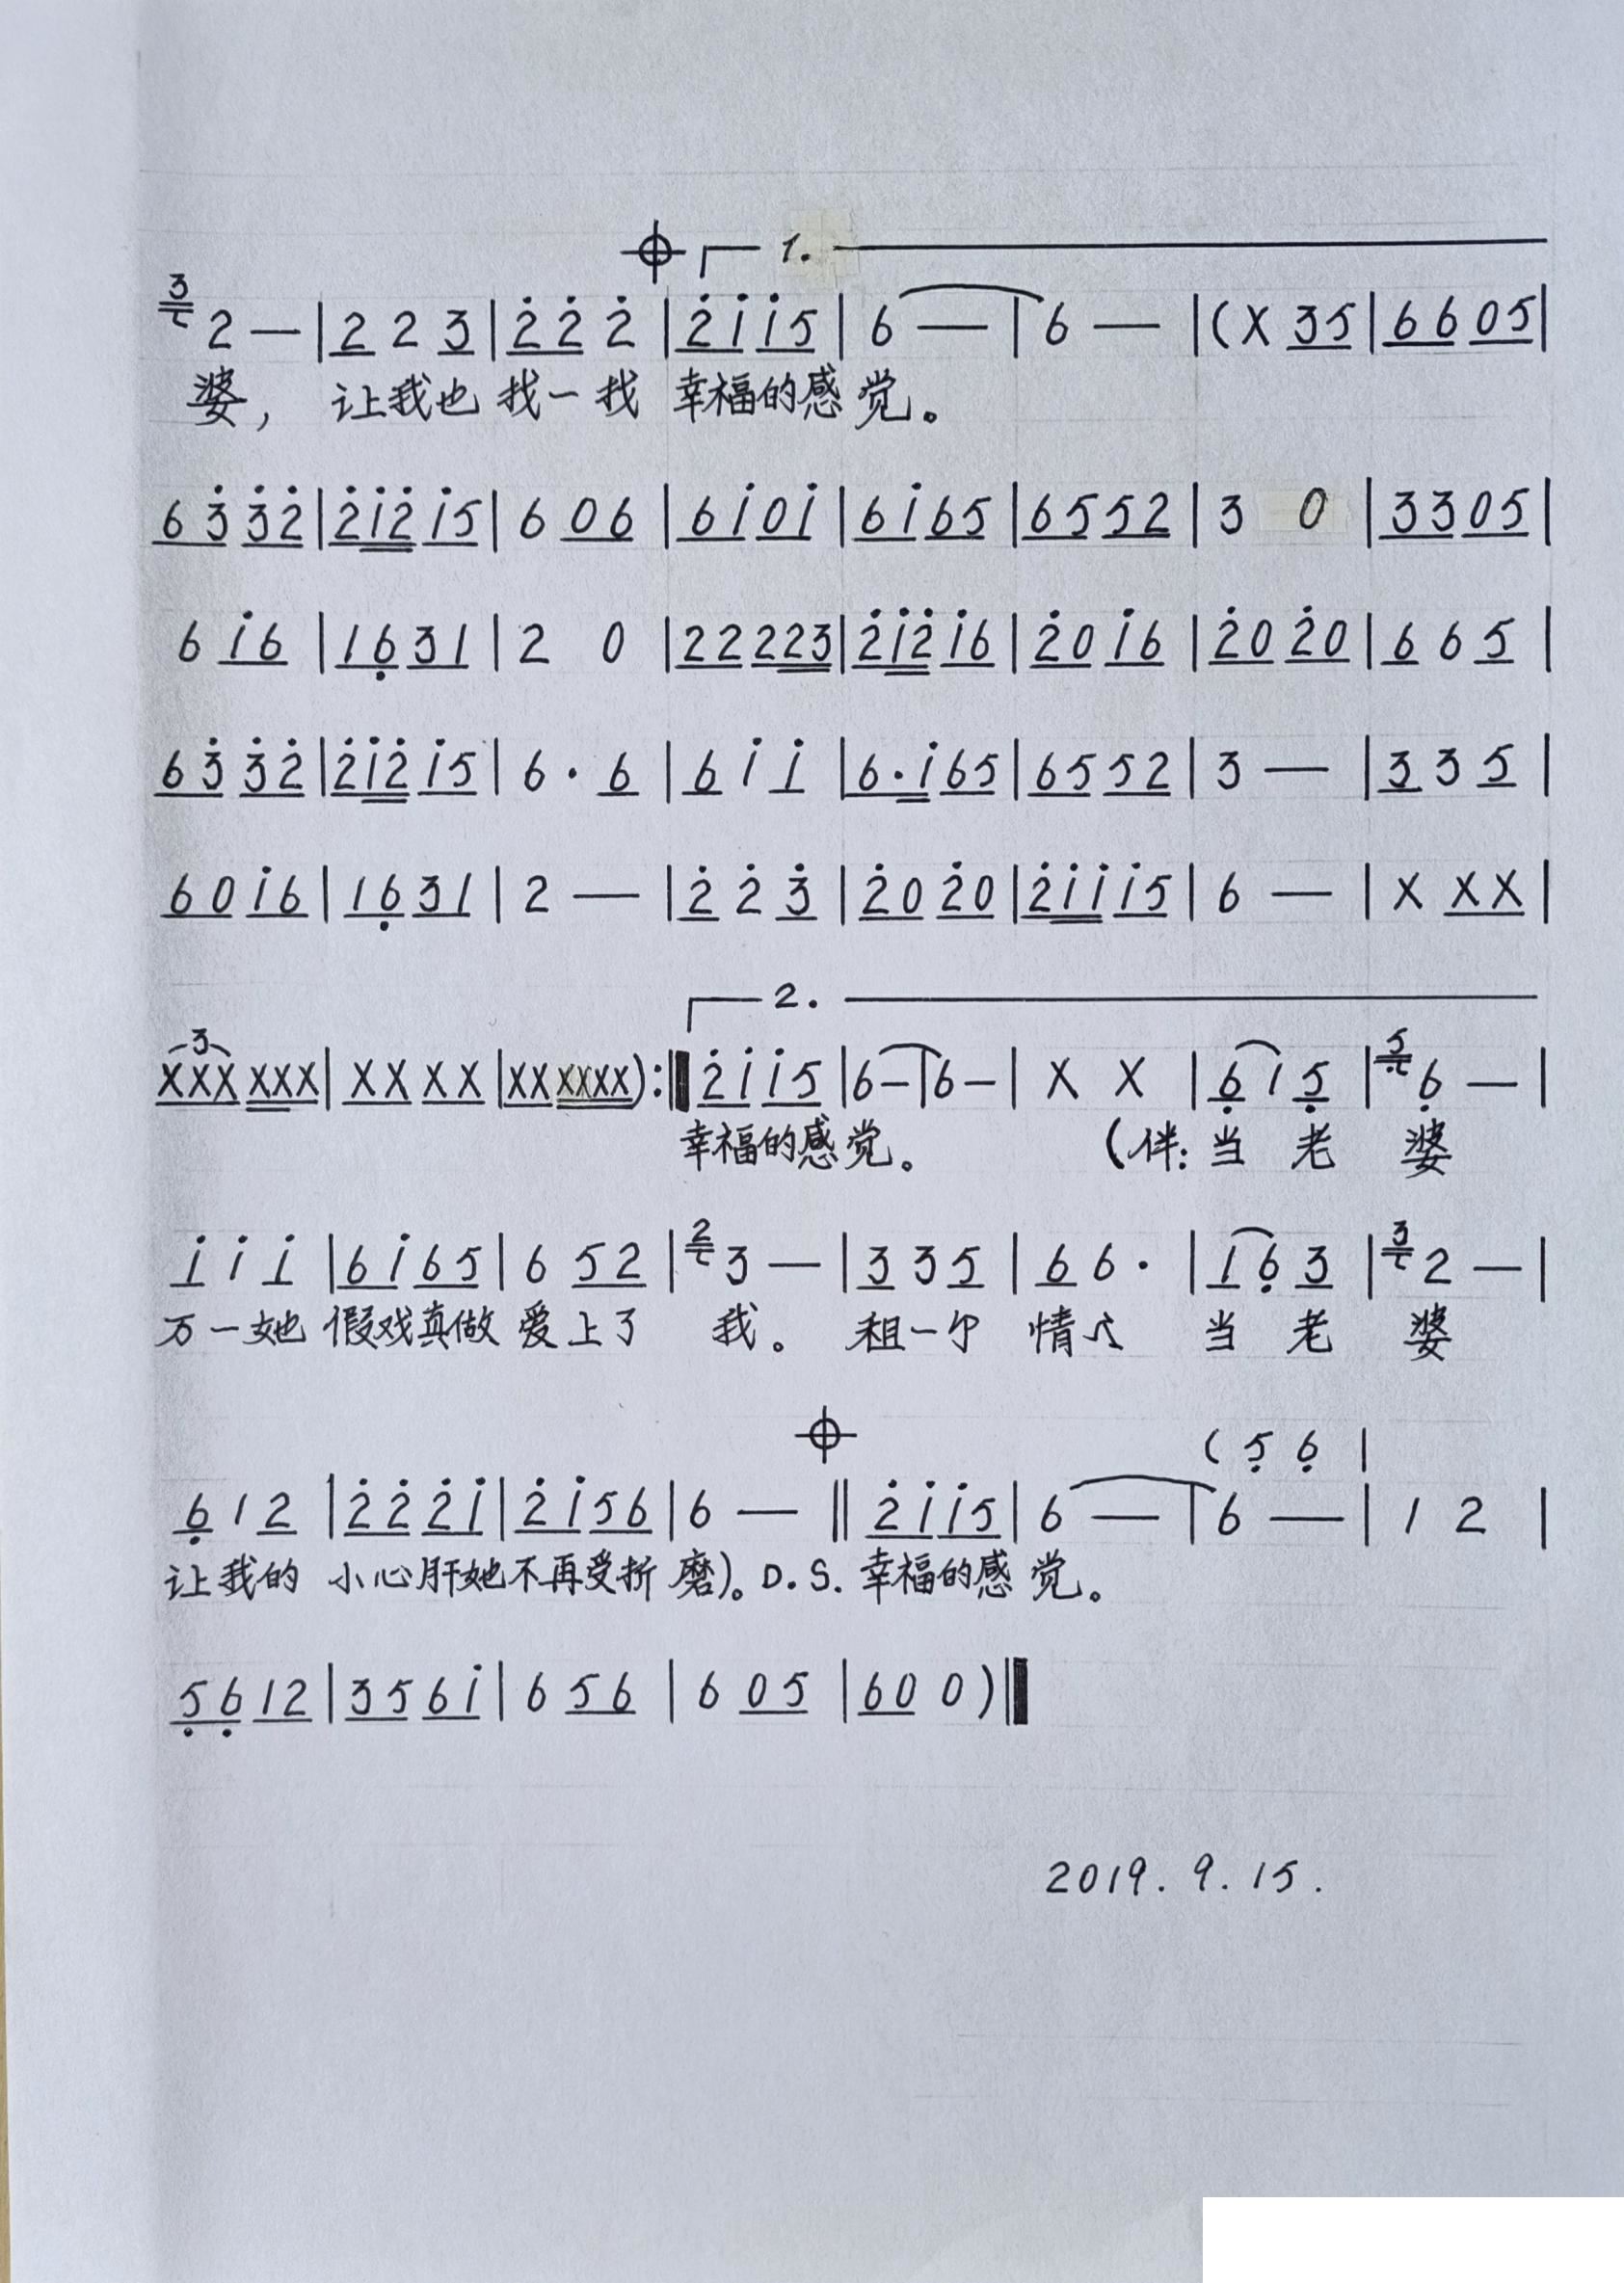 1.
3 2 — | 2 2 3 | 2̇ 2̇ 2̇ | 2̇ i i 5 | 6 — | 6 — | ( X 3 5 | 6 6 0 5 |
婆， 让我也 找一找 幸福的感觉。
6 3̇ 3̇ 2̇ | 2̇ i 2̇ i 5 | 6 0 6 | 6 i 0 i | 6 i 6 5 | 6 5 5 2 | 3 0 | 3 3 0 5 |
6 i 6 | 1 6̣ 3 1 | 2 0 | 2 2 2 2 3 | 2̇ i 2̇ i 6 | 2̇ 0 i 6 | 2̇ 0 2̇ 0 | 6 6 5 |
6 3̇ 3̇ 2̇ | 2̇ i 2̇ i 5 | 6 · 6 | 6 i i | 6 · i 6 5 | 6 5 5 2 | 3 — | 3 3 5 |
6 0 i 6 | 1 6̣ 3 1 | 2 — | 2̇ 2̇ 3̇ | 2̇ 0 2̇ 0 | 2̇ i i i 5 | 6 — | X X X |
3 2.
X X X X X X | X X X X | X X X X X X ) :‖ 2̇ i i 5 | 6 — | 6 — | X X | 6̣ 1 5̣ | 5̣ 6̣ — |
幸福的感觉。 （伴：当 老 婆
i i i | 6 i 6 5 | 6 5 2 | 2 3 — | 3 3 5 | 6 6 · | 1 6̣ 3 | 3 2 — |
万一她 假戏真做 爱上了 我。 租一个 情人 当 老 婆
( 5̣ 6̣ |
6̣ 1 2 | 2̇ 2̇ 2̇ i | 2̇ i 5 6 | 6 — ‖ 2̇ i i 5 | 6 — | 6 — | 1 2 |
让我的 小心肝她不再受折磨）。D.S. 幸福的感觉。
5̣ 6̣ 1 2 | 3 5 6 i | 6 5 6 | 6 0 5 | 6 0 0 ) ‖
2019. 9. 15.